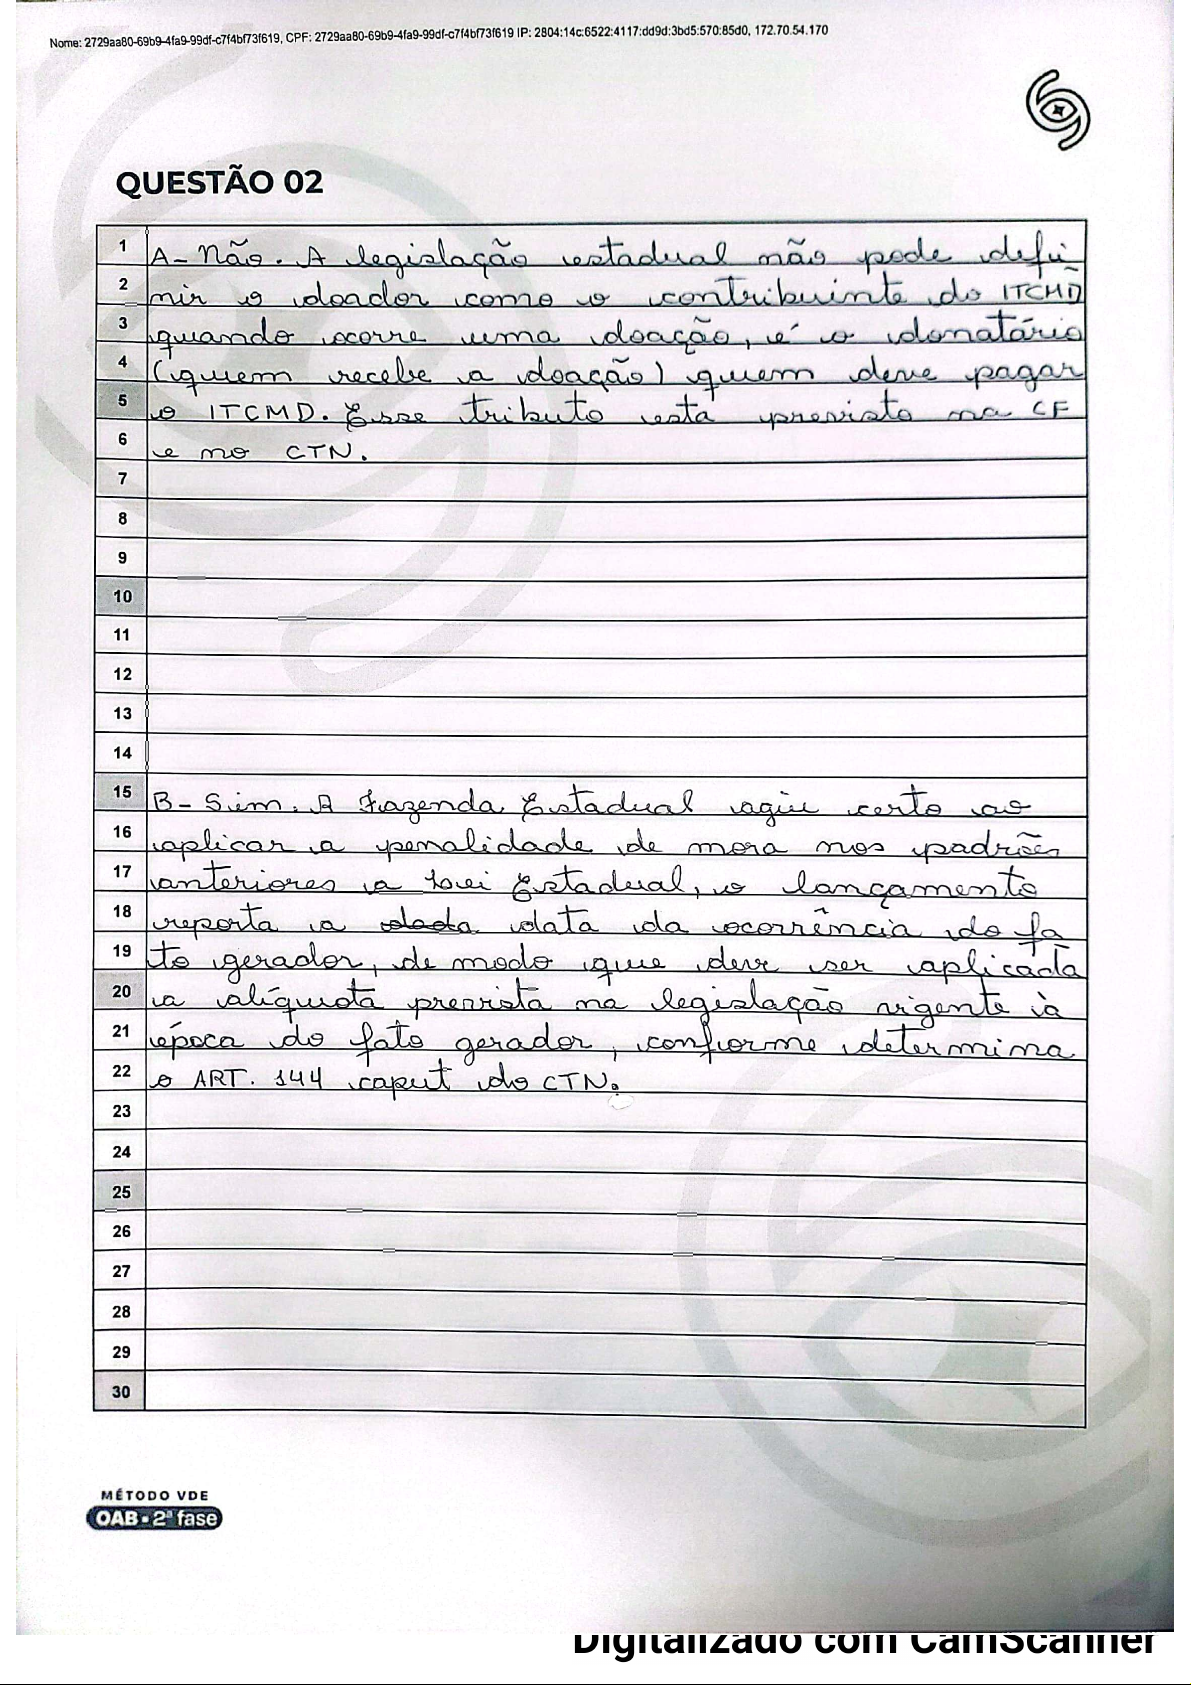 Nome: 2729aa80-69b9-4fa9-99df-c7f4bf73f619, CPF: 2729aa80-69b9-4fa9-99df-c7f4bf73f619 IP: 2804:14c:6522:4117:dd9d:3bd5:570:85d0, 172.70.54.170
QUESTÃO 02
1 A- Não. A legislação estadual não pode defi
2 nir o doador como o contribuinte do ITCMD
3 quando ocorre uma doação, é o donatário
4 (quem recebe a doação) quem deve pagar
5 o ITCMD. Esse tributo esta previsto na CF
6 e no CTN.
7
8
9
10
11
12
13
14
15 B- Sim. A Fazenda Estadual agiu certo ao
16 aplicar a penalidade de mora nos padrões
17 anteriores a Lei Estadual, o lançamento
18 reporta a dada data da ocorrência do fa
19 to gerador, de modo que deve ser aplicada
20 a alíquota prevista na legislação vigente à
21 época do fato gerador, conforme determina
22 o ART. 144 caput do CTN.
23
24
25
26
27
28
29
30
MÉTODO VDE
OAB • 2ª fase
Digitalizado com CamScanner